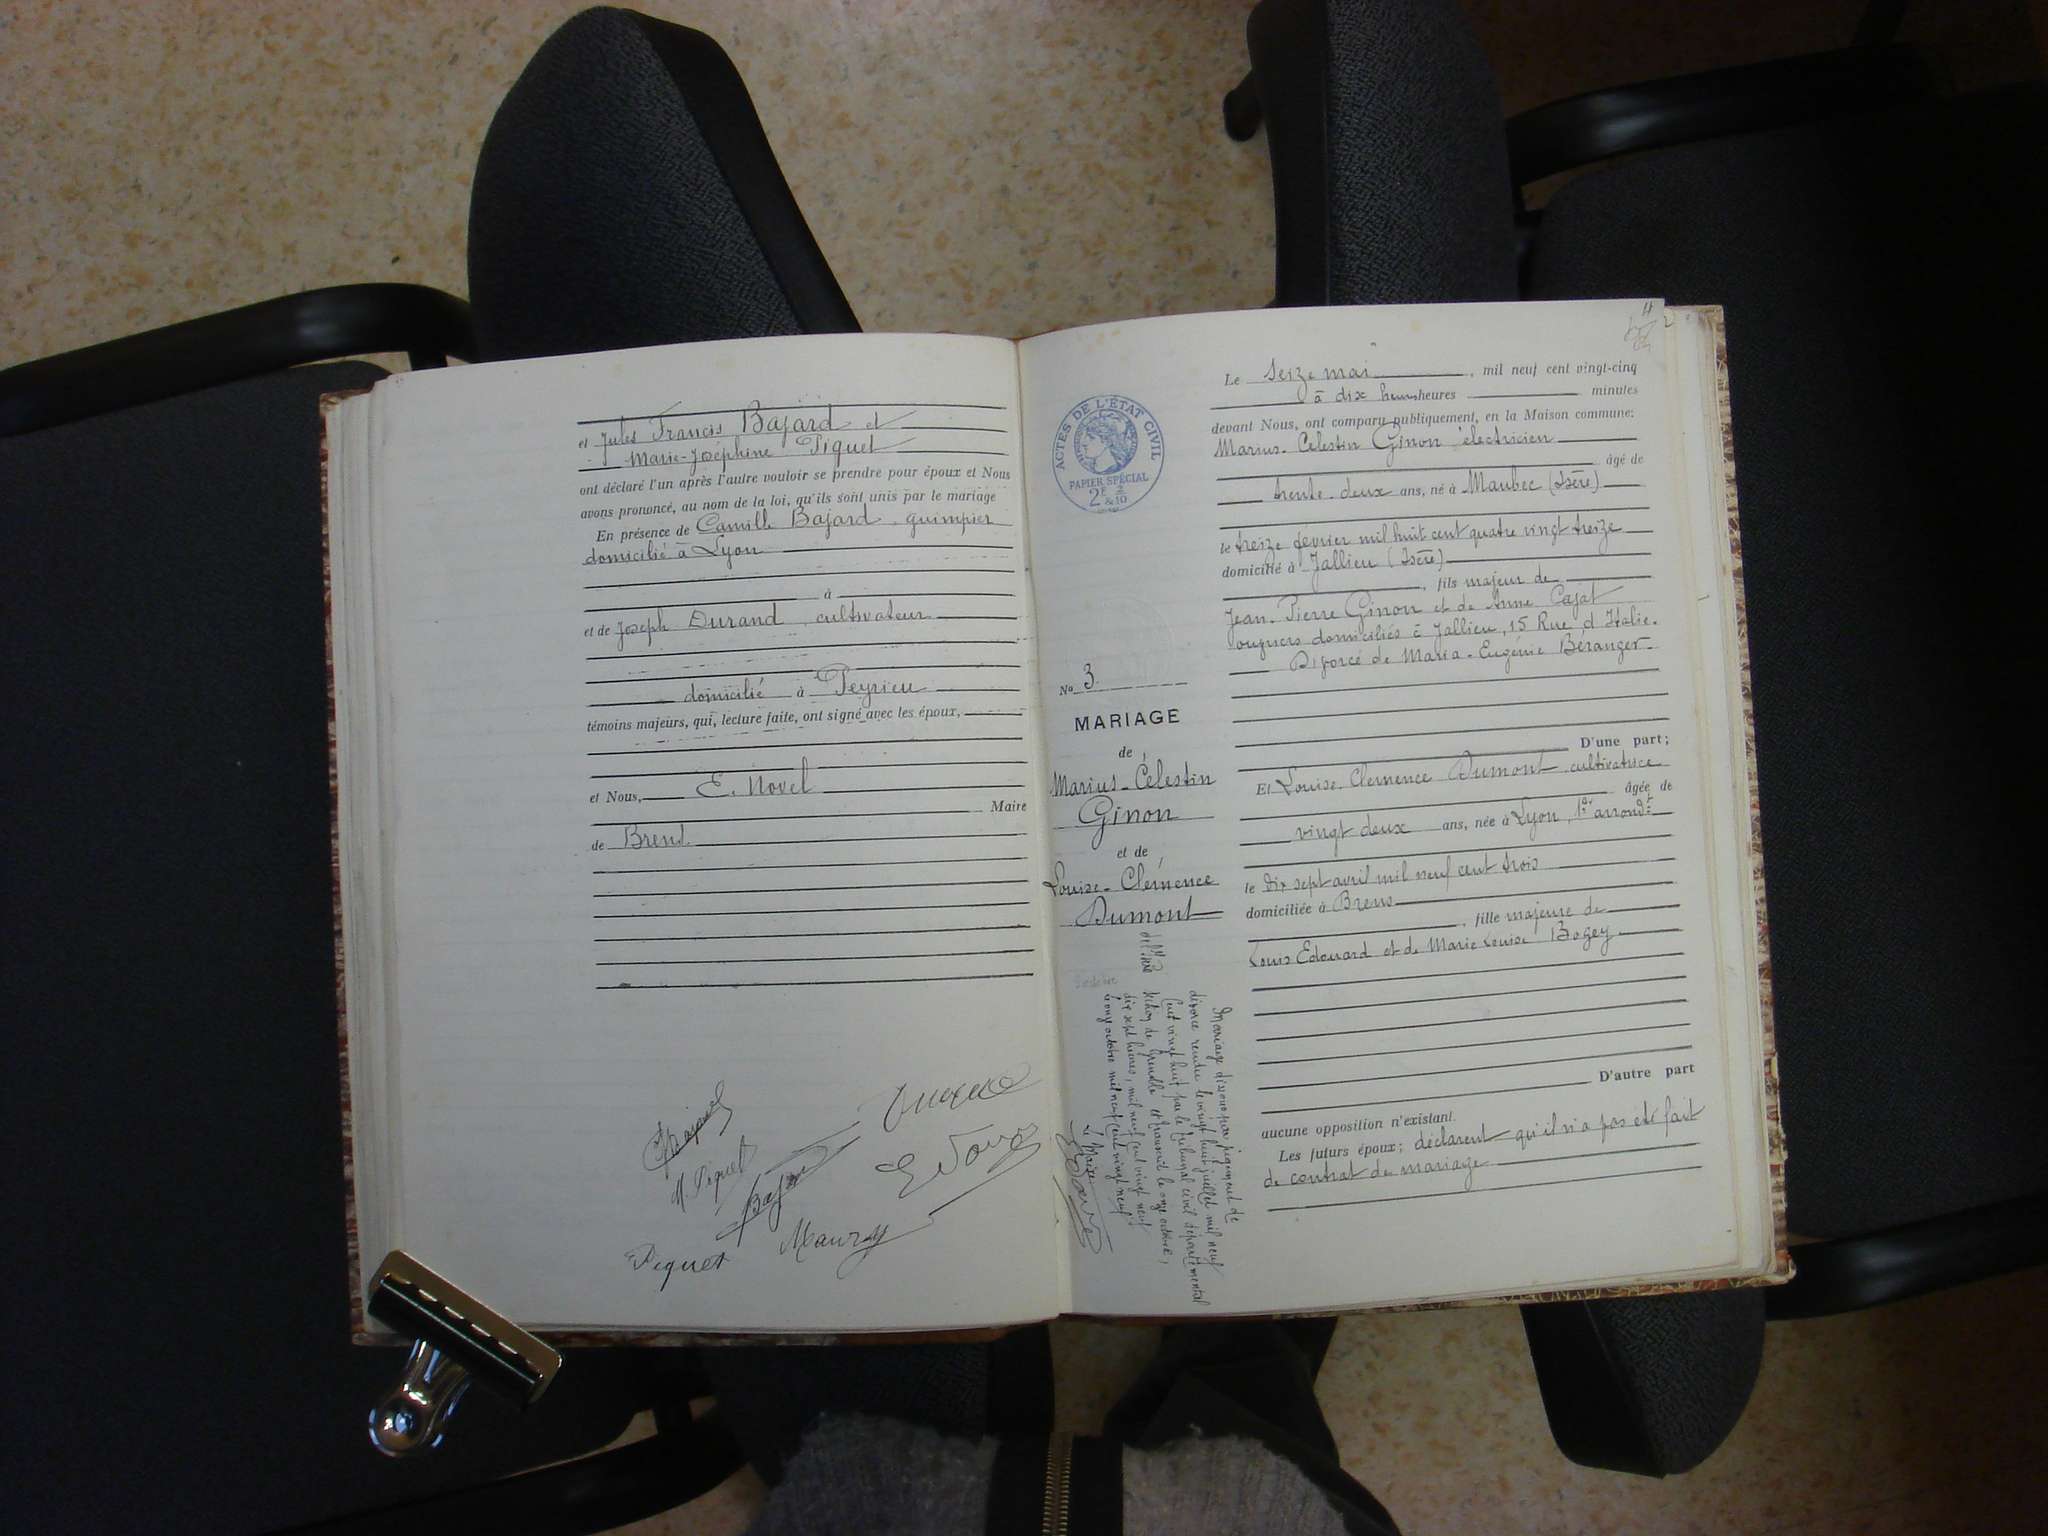 et Jules Francis Bajard et
Marie-Joséphine Piquet
ont déclaré l'un après l'autre vouloir se prendre pour époux et Nous
avons prononcé, au nom de la loi, qu'ils sont unis par le mariage
En présence de Camille Bajard, guimpier
domicilié à Lyon
à
et de Joseph Durand, cultivateur
domicilié à Peyrieu
témoins majeurs, qui, lecture faite, ont signé avec les époux,
et Nous, E. Novel
Maire
de Brens
M. Piquet
Bajard
Piquet
Mauray
ACTES DE L'ÉTAT CIVIL
PAPIER SPÉCIAL
2F
&2/10
No 3.
MARIAGE
de
Marius-Célestin
Ginon
et de
Louise-Clémence
Dumont
Mariage dissous par jugement de
divorce rendu le vingt huit juillet mil neuf
cent vingt huit par le tribunal civil départemental
section de Grenoble et transcrit le onze octobre,
dix sept heures, mil neuf cent vingt neuf
Brens onze octobre mil neuf cent vingt neuf
Le Maire
4
Le Seize mai, mil neuf cent vingt-cinq
à dix heures heures minutes
devant Nous, ont comparu publiquement, en la Maison commune:
Marius-Célestin Ginon électricien
âgé de
trente-deux ans, né à Maubec (Isère)
le treize février mil huit cent quatre vingt treize
domicilié à Jallieu (Isère)
, fils majeur de
Jean-Pierre Ginon et de Anne Cajat
ouvriers domiciliés à Jallieu, 15 Rue d'Italie.
Divorcé de Maria-Eugénie Béranger
D'une part;
Et Louise-Clémence Dumont cultivatrice
âgée de
vingt deux ans, née à Lyon, 1er arrondt
le dix sept avril mil neuf cent trois
domiciliée à Brens
, fille majeure de
Louis Edouard et de Marie Louise Bogey
D'autre part
aucune opposition n'existant.
Les futurs époux; déclarent qu'il n'a pas été fait
de contrat de mariage